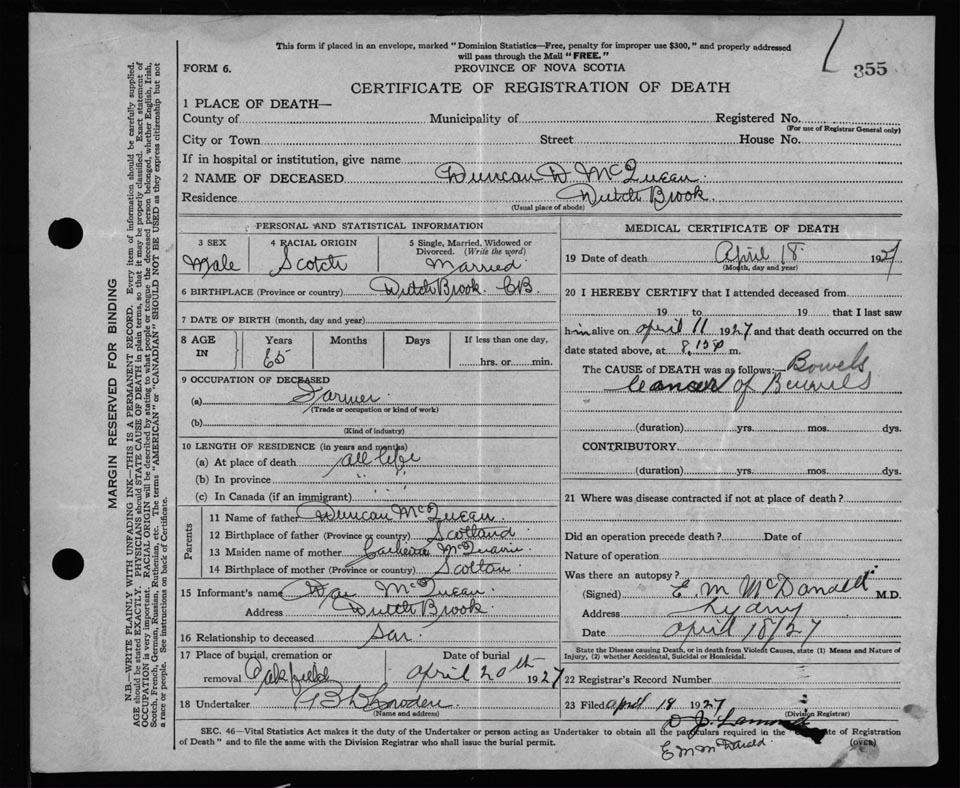 This form if placed in an envelope, marked "Dominion Statistics—Free, penalty for improper use $300," and properly addressed
will pass through the Mail "FREE."
355
FORM 6.
PROVINCE OF NOVA SCOTIA
CERTIFICATE OF REGISTRATION OF DEATH
1 PLACE OF DEATH—
County of Municipality of Registered No.
(For use of Registrar General only)
City or Town Street House No.
If in hospital or institution, give name
2 NAME OF DECEASED Duncan D McQueen
Residence Dutch Brook
(Usual place of abode)
PERSONAL AND STATISTICAL INFORMATION
3 SEX 4 RACIAL ORIGIN 5 Single, Married, Widowed or
Divorced. (Write the word)
Male Scotch Married
6 BIRTHPLACE (Province or country) Dutch Brook. CB.
7 DATE OF BIRTH (month, day and year)
8 AGE IN Years Months Days If less than one day,
65 hrs. or min.
9 OCCUPATION OF DECEASED
(a) Farmer
(Trade or occupation or kind of work)
(b)
(Kind of industry)
10 LENGTH OF RESIDENCE (in years and months)
(a) At place of death all life
(b) In province " "
(c) In Canada (if an immigrant) " "
Parents
11 Name of father Duncan McQueen
12 Birthplace of father (Province or country) Scotland
13 Maiden name of mother Catherine
14 Birthplace of mother (Province or country)
15 Informant's name McQueen
Address Dutch Brook
16 Relationship to deceased
17 Place of burial, cremation or Date of burial
removal Oakfield april 20th 1927
18 Undertaker
(Name and address)
MEDICAL CERTIFICATE OF DEATH
19 Date of death April 18 1927
(Month, day and year)
20 I HEREBY CERTIFY that I attended deceased from
19 to 19 that I last saw
him alive on april 11 1927 and that death occurred on the
date stated above, at m.
The CAUSE of DEATH was as follows:— Bowels
Cancer of Bowels
(duration) yrs. mos. dys.
CONTRIBUTORY.
(duration) yrs. mos. dys.
21 Where was disease contracted if not at place of death?
Did an operation precede death? Date of
Nature of operation
Was there an autopsy?
(Signed) E. M McDonald M.D.
Address Sydny
Date april 18/27
State the Disease causing Death, or in death from Violent Causes, state (1) Means and Nature of
Injury, (2) whether Accidental, Suicidal or Homicidal.
22 Registrar's Record Number
23 Filed april 18 1927
(Division Registrar)
SEC. 46—Vital Statistics Act makes it the duty of the Undertaker or person acting as Undertaker to obtain all the particulars required in the ate of Registration
of Death" and to file the same with the Division Registrar who shall issue the burial permit.
(OVER)
MARGIN RESERVED FOR BINDING
N.B.—WRITE PLAINLY WITH UNFADING INK—THIS IS A PERMANENT RECORD. Every item of information should be carefully supplied.
AGE should be stated EXACTLY. PHYSICIANS should STATE CAUSE OF DEATH in plain terms, so that it may be properly classified. Exact statement of
OCCUPATION is very important. RACIAL ORIGIN will be described by stating to what people or tongue the deceased person belonged, whether English, Irish,
Scotch, French, German, Russian, Ruthenian, etc. The terms "AMERICAN" or "CANADIAN" SHOULD NOT BE USED as they express citizenship but not
a race or people. See instructions on back of Certificate.